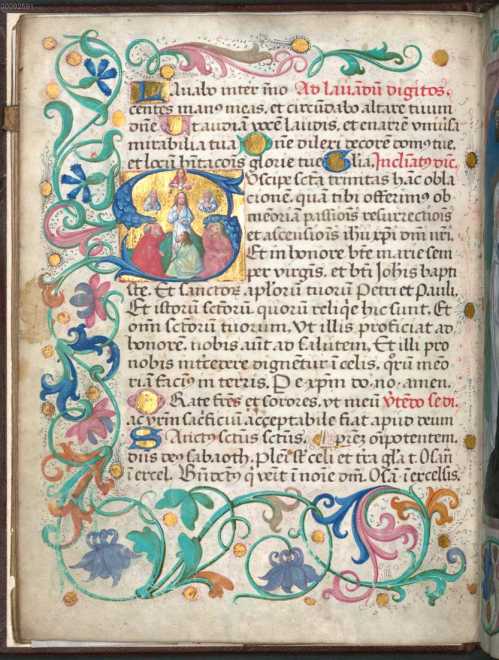 00002591
Lauabo inter īnō Ad lauādū digitos.
centes man9 meas, et circūdabo altare tuum
dn̄e Ut audiā vocē laudis, et enarrē vniūsa
mirabilia tua Dn̄e dilexi decorē dom9 tue,
et locū h̄itacōis glorie tue Glia Inclinat9 dic̄.
Suscipe sctā trinitas hāc obla
cionē, quā tibi offerim9 ob
memoriā passiōis resurrectiōis
et ascensiōis ihū xp̄i dm̄ nr̄i.
Et in honore bt̄e marie sem
per virgīs, et bt̄i Joh̄is bapti
ste, Et sanctorū apl̄orū tuorū Petri et Pauli,
Et istorū sctōrū quorū reliq̄e hic sunt, Et
oīm sctōrū tuorum, Vt illis proficiat ad
honorē, nobis aūt ad salutem, Et illi pro
nobis int̄cedere dignēntur ī celis, q̄rū mēo
riā facim9 in terris, Pe xp̄m do. no. amen.
Orate frēs et sorores, vt meū Vertēdo se di.
ac vr̄m sacrificiū acceptabile fiat apud deum
Sanct9 sctūs sctūs.
dn̄s de9 sabaoth, Plēi st̄ celi et tr̄a gl̄a t. Osāna
ī excel. Bn̄dict9 q̄ veīt ī noīe dm̄. Osā. ī excelsis.